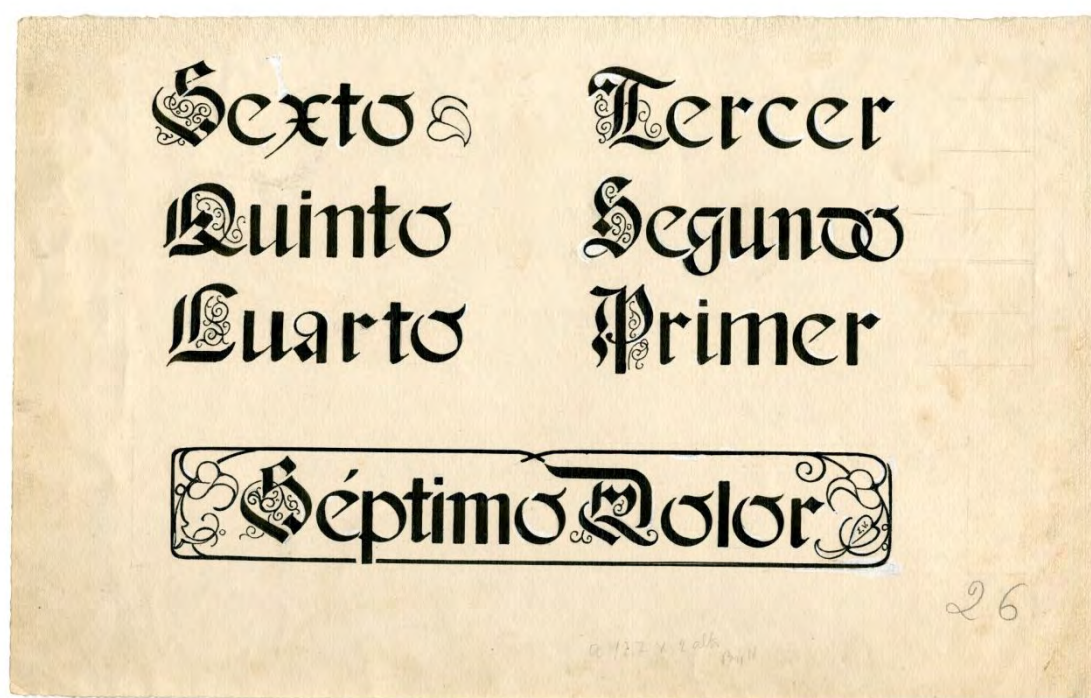 Sexto
Quinto
Cuarto
Tercer
Segundo
Primer
Séptimo Dolor
26